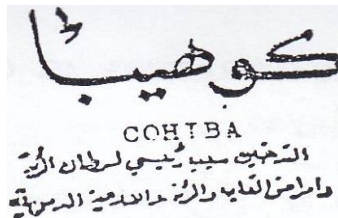 كوهيبا
COHIBA
التدخين سبب رئيسي لسرطان الرئة
وامراض القلب والرئة والاوعية الدموية